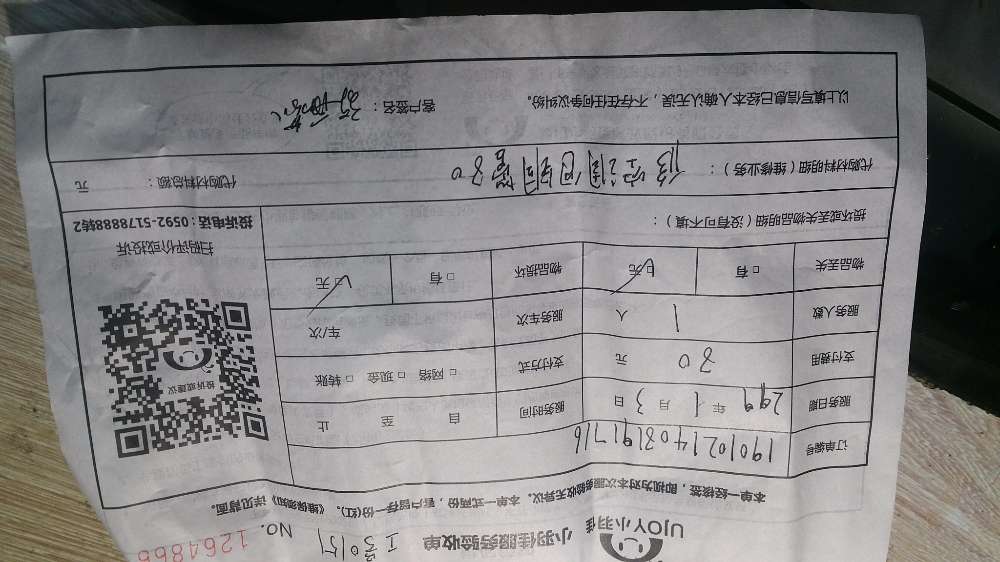 UJOY小羽佳
小羽佳服务验收单
NO. 1264866
本单一经核签，即视为对本次服务验收无异议。本单一式两份，客户留存一份(红)。《维保须知》详见背面。
订单编号 19010214031891716
服务日期 年 1 月 3 日 服务时间 自 至 止
支付费用 30 元 支付方式 □ 网络 □ 现金 □ 转账
服务人数 1 人 服务车次 车/次
物品丢失 □ 有 □ 无 物品损坏 □ 有 □ 无
投诉或建议
扫码评价或投诉
投诉电话：0592-5178888转2
损坏或丢失物品明细（没有可不填）：
代购材料明细（维修业务）： 代购材料总额： 元
以上填写信息已经本人确认无误，不存在任何争议纠纷。 客户签名：